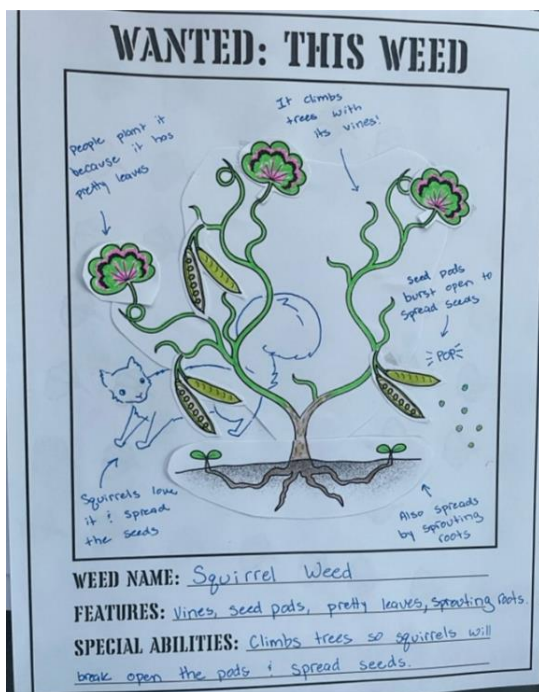 WANTED: THIS WEED
It climbs
trees with
its vines!
people plant it
because it has
pretty leaves
seed pods
burst open to
spread seeds
POP
Squirrels love
it & spread
the seeds
Also spreads
by sprouting
roots
WEED NAME: Squirrel Weed
FEATURES: Vines, seed pods, pretty leaves, sprouting roots.
SPECIAL ABILITIES: Climbs trees so squirrels will
break open the pods & spread seeds.